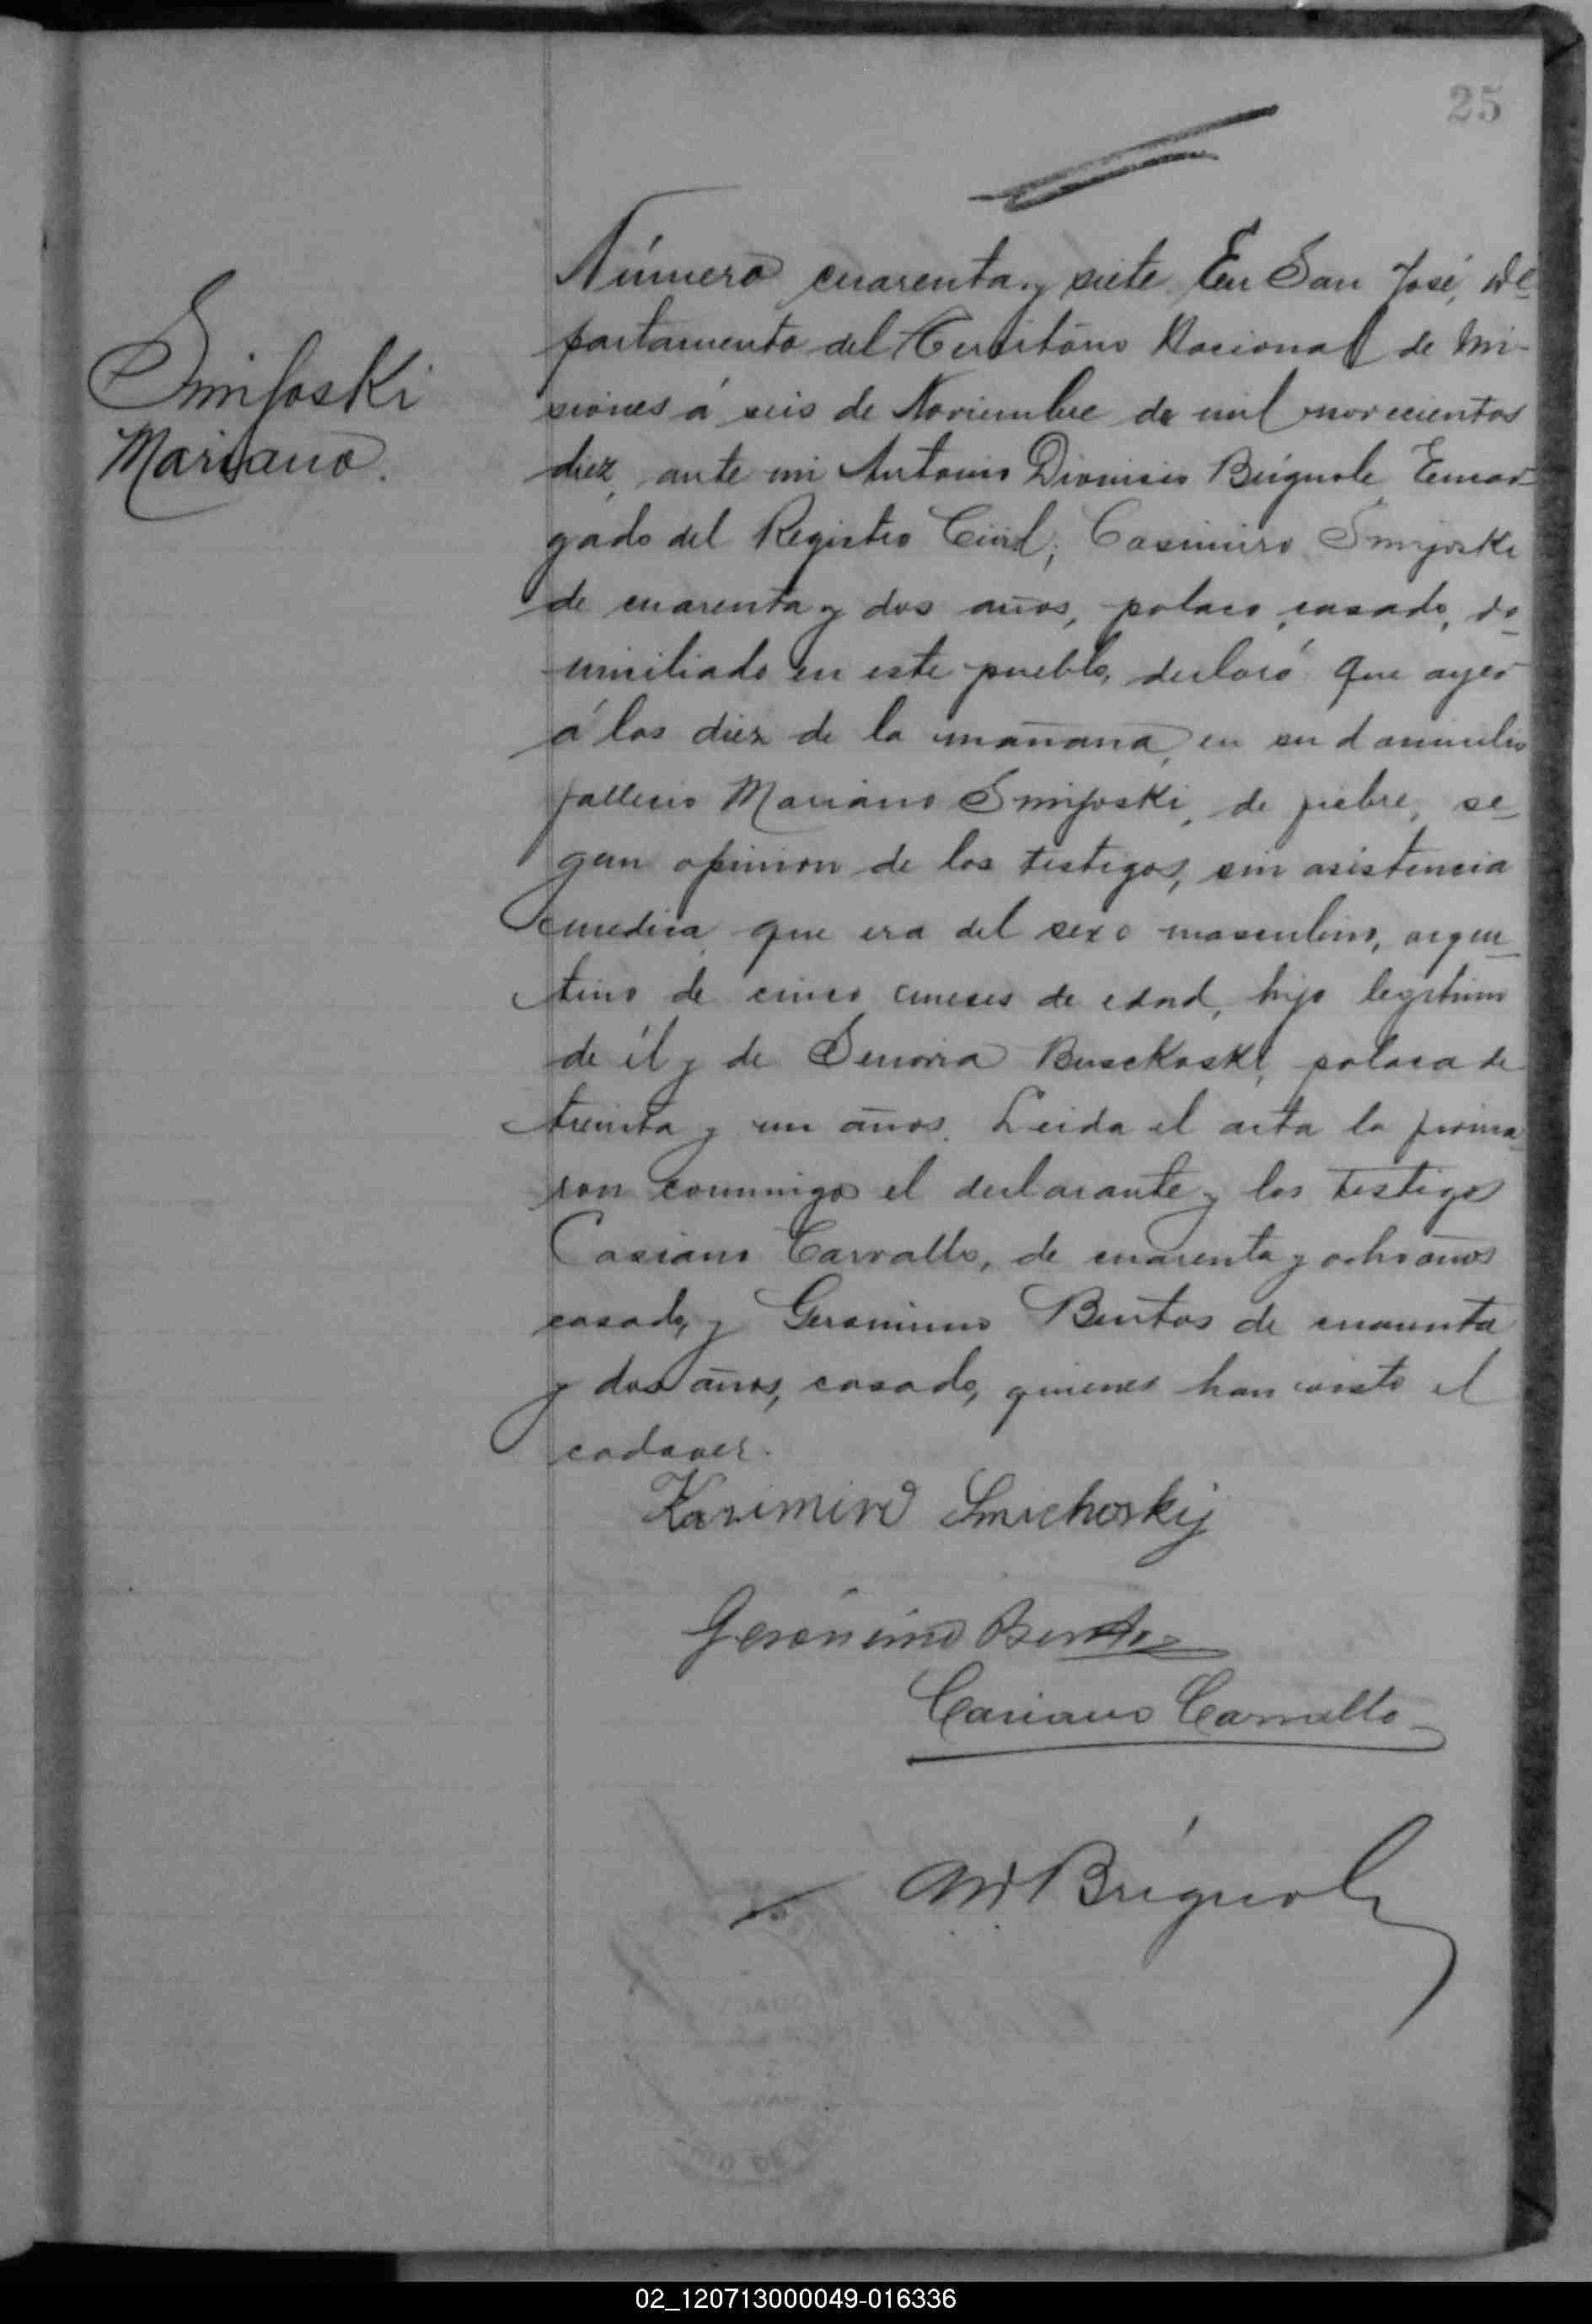 25
Smijoski
Mariano.
Número cuarenta y siete En San José, De-
partamento del Territorio Nacional de Mi-
siones á seis de Noviembre de mil novecientos
diez, ante mi Antonio Dionisio Brignole, Encar-
gado del Registro Civil, Casimiro Smijoski
de cuarenta y dos años, polaco, casado, do-
miciliado en este pueblo, declaró: que ayer
á las diez de la mañana, en su domicilio
fallecio Mariano Smijoski, de fiebre, se-
gun opinion de los testigos, sin asistencia
medica, que era del sexo masculino, argen-
tino de cinco meses de edad, hijo legitimo
de él y de Senovia Busckoski, polaca de
treinta y un años. Leida el acta la firma-
ron conmigo el declarante y los testigos
Casiano Carvallo, de cuarenta y ocho años
casado, y Geronimo Bentos de cuarenta
y dos años, casado, quienes han visto el
cadaver.
Kazimiro Smichoskij
Gerónimo Bentos
Casiano Carvallo
AD Brignole
02_120713000049-016336